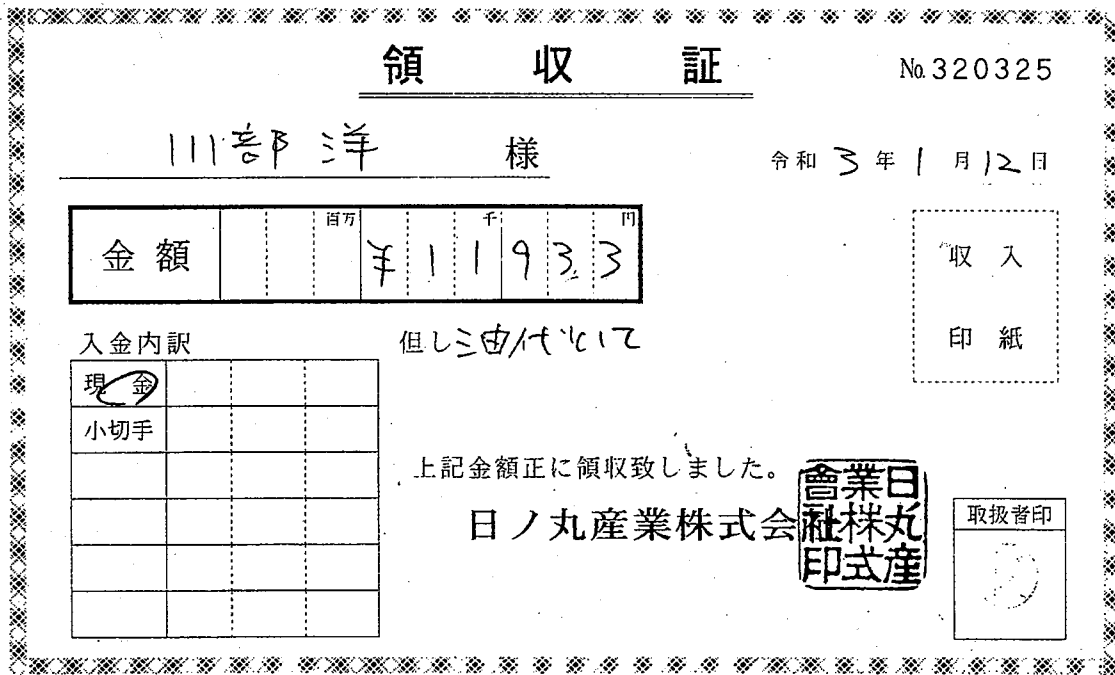 領収証
No.320325
川部 洋 様
令和 3 年 1 月 12 日
金額 百万 千 円
¥11933
入金内訳
但し 油代として
収入
印紙
現金
小切手
上記金額正に領収致しました。
日ノ丸産業株式会社
日丸産業株式會社印
取扱者印